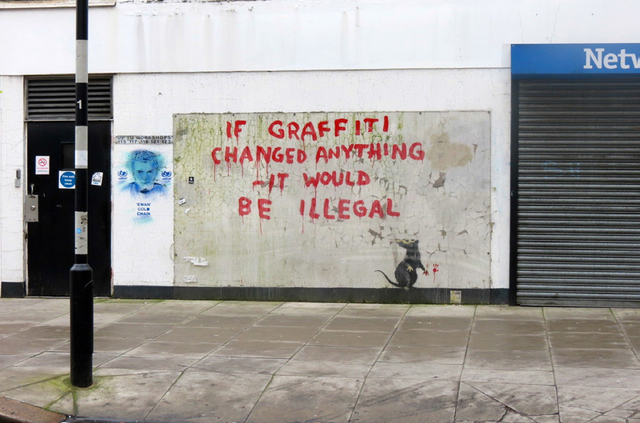 IF GRAFFITI
CHANGED ANYTHING
-IT WOULD
BE ILLEGAL
Netw
1
'EWAN'
GOLD
CHAIN